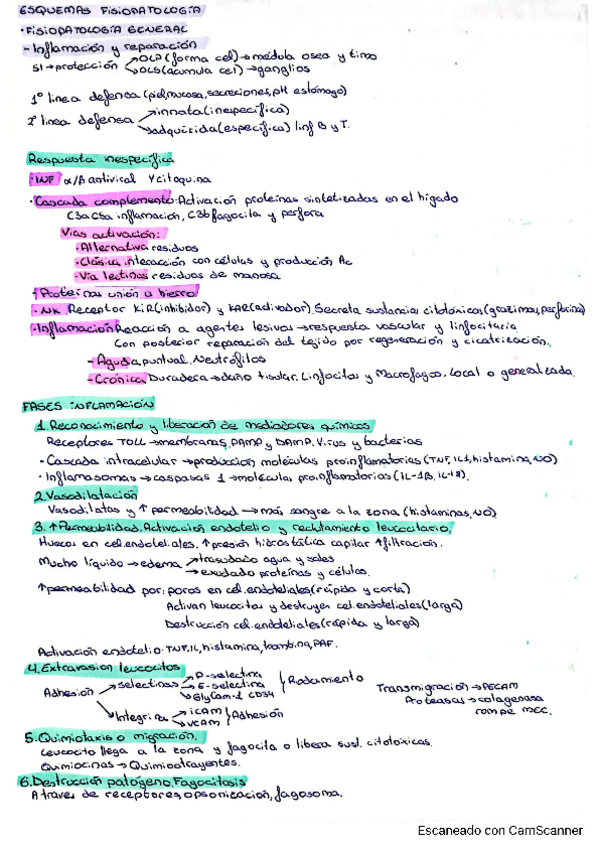 ESQUEMAS FISIOPATOLOGÍA
·FISIOPATOLOGÍA GENERAL
- Inflamación y reparación
SI→protección OLP (forma cel)→médula osea y timo
OLS (acumula cel)→ganglios
1º linea defensa (piel, mucosa, secreciones, pH estómago)
2º linea defensa innata (inespecífica)
adquirida (específica) linf B y T.
Respuesta inespecífica
·INF α/β antivical γ citoquina
·Cascada complemento: Activación proteínas sintetizadas en el hígado
C3a C5a inflamación, C3b fagocita y perfora
Vías activación:
·Alternativa residuos
·Clásica interacción con células y producción Ac
·Vía lectinas residuos de manosa
·Proteínas unión a hierro
·NK Receptor KIR (inhibidor) y KAR (activador). Secreta sustancias citotóxicas (granzimas, perforina)
·Inflamación Reacción a agentes lesivos→respuesta vascular y linfocitaria
Con posterior reparación del tejido por regeneración y cicatrización.
- Aguda puntual. Neutrófilos
- Crónica Duradera→daño tisular. Linfocitos y Macrofagos. Local o generalizada.
FASES INFLAMACIÓN
1. Reconocimiento y liberación de mediadores químicos
Receptores TOLL→membranas, PAMP y DAMP. Virus y bacterias
· Cascada intracelular→producción moléculas proinflamatorias (TNF, IL1, histamina, NO)
· Inflamasomas→caspasas 1→moléculas proinflamatorias (IL-1β, IL-18).
2. Vasodilatación
Vasodilatas y ↑ permeabilidad→más sangre a la zona (histaminas, NO)
3. ↑ Permeabilidad. Activación endotelio y reclutamiento leucocitario.
Huecos en cel. endoteliales. ↑ presión hidrostática capilar ↑ filtración.
Mucho líquido→edema trasudado agua y sales
exudado proteínas y células.
↑ permeabilidad por: poros en cel. endoteliales (rápida y corta)
Activan leucocitos y destruyen cel. endoteliales (larga)
Destrucción cel. endoteliales (rápida y larga)
Activación endotelio: TNF, IL, histamina, trombina, PAF.
4. Extravasion leucocitos
Adhesión selectinas P-selectina
E-selectina Rodamiento
GlyCam-1 CD34
Integrinas ICAM
VCAM Adhesión
Transmigración→PECAM
Proteasas→colagenasa
rompe MEC.
5. Quimiotaxis o migración.
Leucocito llega a la zona y fagocita o libera sust. citotóxicas.
Quimiocinas→Quimioatrayentes.
6. Destrucción patógeno. Fagocitosis
A traves de receptores, opsonización, fagosoma.
Escaneado con CamScanner